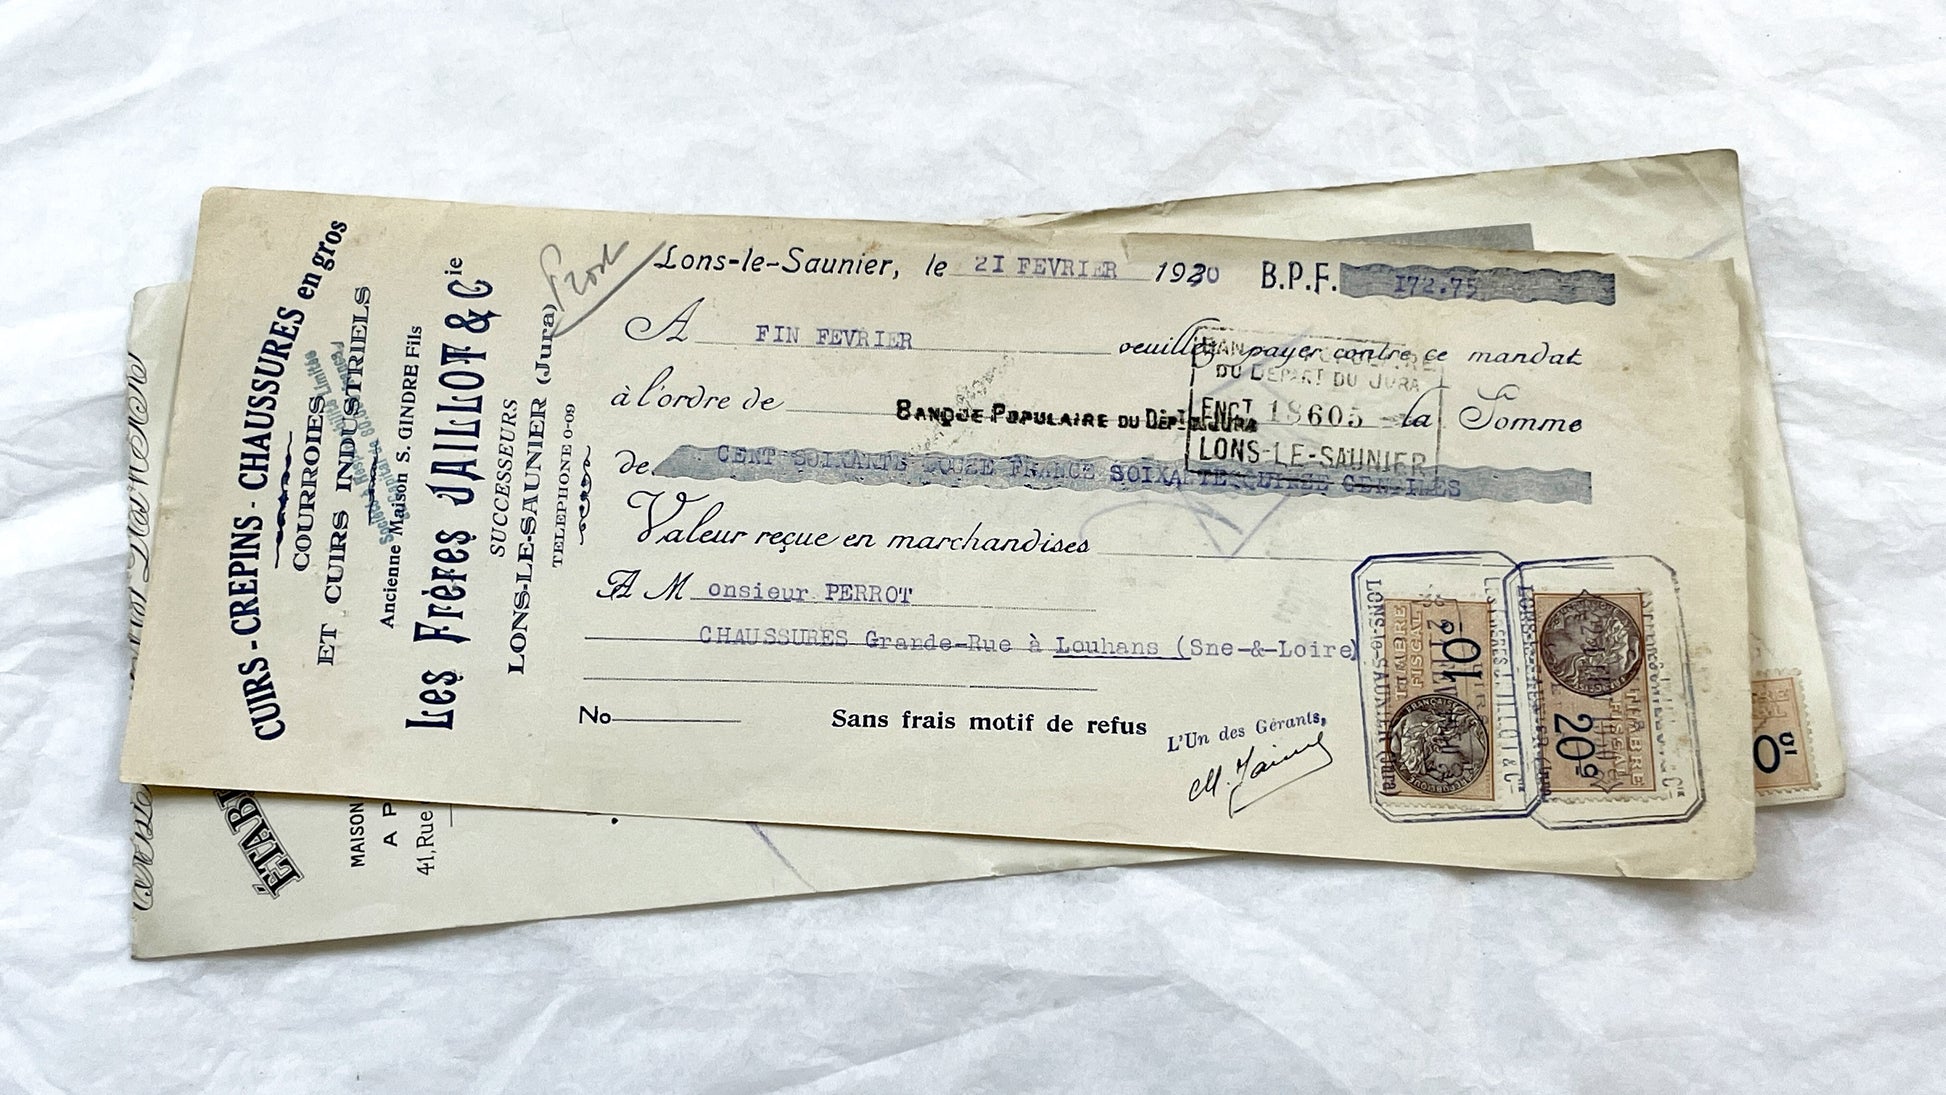 CUIRS - CREPINS - CHAUSSURES en gros
COURROIES
ET CUIRS INDUSTRIELS
Société à Responsabilité Limitée
Ancienne Maison S. GINDRE Fils
Les Frères JAILLOT & Cie
SUCCESSEURS
LONS-LE-SAUNIER (Jura)
TELEPHONE 0-09
Lons-le-Saunier, le 21 FEVRIER 1930 B.P.F. 172.75
A FIN FEVRIER veuillez payer contre ce mandat
à l'ordre de BANQUE POPULAIRE DU DÉPT DU JURA la Somme
de CENT SOIXANTE DOUZE FRANCS SOIXANTE QUINZE CENTIMES
DU DEPART DU JURA
ENCT 18605
LONS-LE-SAUNIER
Valeur reçue en marchandises
A M onsieur PERROT
CHAUSSURES Grande-Rue à Louhans (Sne-&-Loire)
No
Sans frais motif de refus
L'Un des Gérants,
TIMBRE
FISCAL
LONS-le-SAUNIER (Jura)
TIMBRE
FISCAL
20
ÉTAB
MAISON
A P
41, Rue